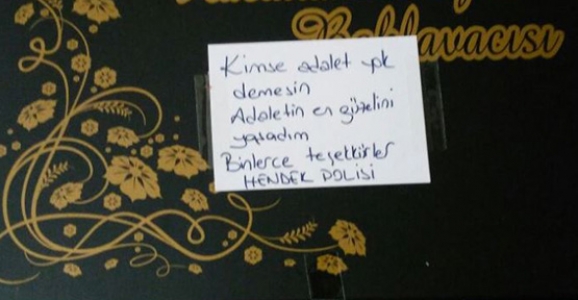 Baklavacısı
Kimse adalet yok
demesin
Adaletin en güzelini
yaşadım
Binlerce teşekkürler
HENDEK POLİSİ